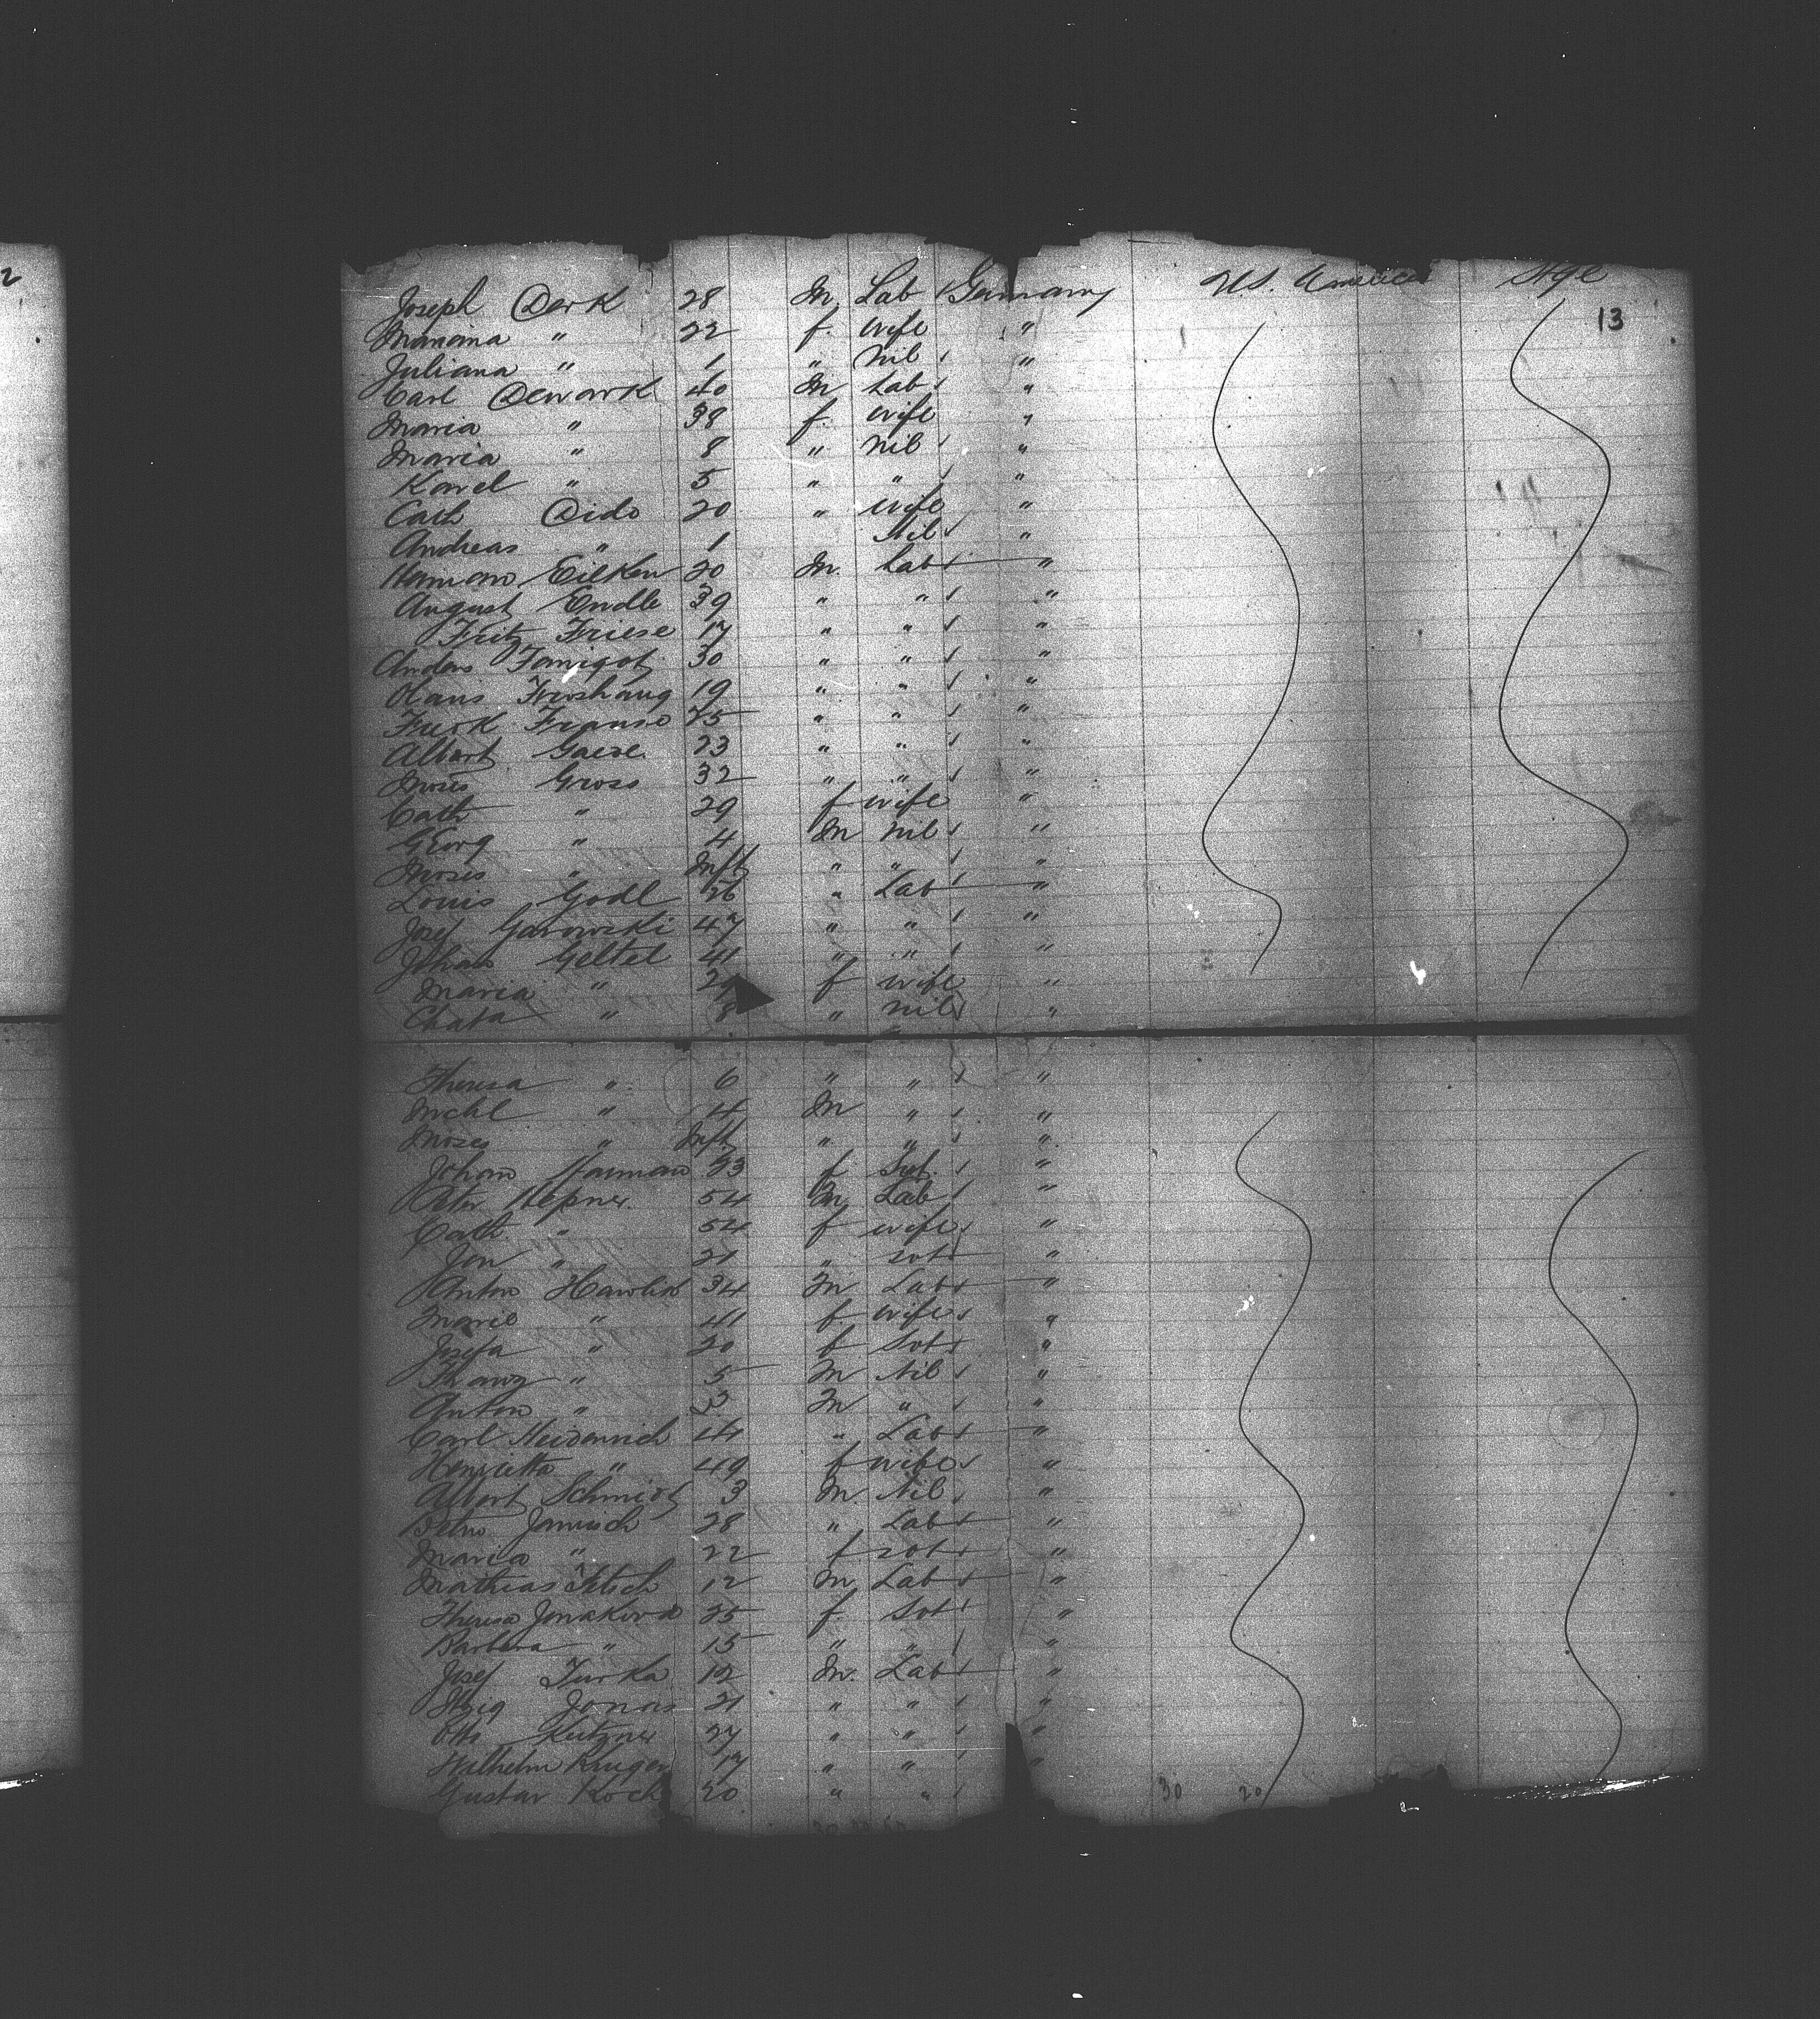 2
Joseph Derk 28 M. Lab Germany U.S. America Stge
13
Mariana " 22 f. wife "
Juliana " 1 " nil "
Carl Dewark 40 M Lab "
Maria " 38 f. wife "
Maria " 8 " nil "
Karel " 5 " " "
Cath Dido 20 " wife "
Andreas " 1 Nil "
Hermann Eilken 20 M. Lab "
August Endle 39 " " "
Fritz Friese 17 " " "
Anders 30 " " "
Olaus Froshaug 19 " " "
Franso 25 " " "
Albert Gaese 23 " " "
Moses Gross 32 " " "
Cath " 29 f wife "
Georg " 4 M nil "
Moses " Inft " " "
Louis Godl 26 " Lab "
Josef Garowski 47 " " "
Johan Geltel 41 " " "
Maria " 29 f wife "
" 8 " nil "
Theresa " 6 " " "
Michl " 4 M " "
Moses " Inft " " "
Johann Harman 53 f "
Peter Hepner 54 M Lab "
Cath " 54 f wife "
" 21 " svt "
Anton Hawlik 34 M Lab "
Marie " 41 f wife "
Josefa " 20 f Svt "
" 5 M Nil "
Anton " 3 M " "
Carl Heidenrich 44 " Lab "
Henrietta " 49 f wife "
Albert Schmidt 3 M. Nil "
Janisch 28 " Lab "
Maria " 22 f svt "
Mathias 12 M Lab "
Theresa 25 f Svt "
Barbara " 15 " " "
Josef Turka 12 M. Lab "
Jonas 21 " " "
Otto Kutzner 27 " " "
Wilhelm Kruger 17 " " "
Gustav Koch 20 " "
30 20